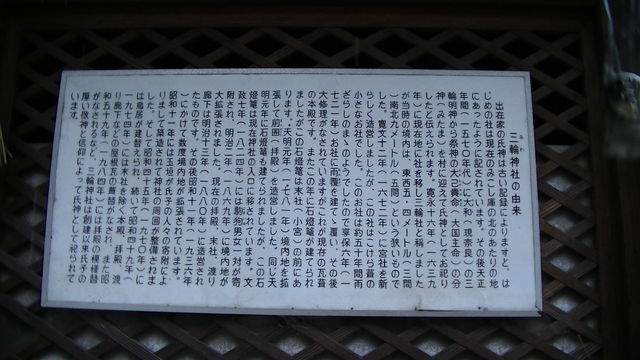 三輪神社の由来
出在家の氏神は古い記録によりますと、は
じめの社は現在のみつくに倉庫の北のあたりの地
にあったように記されています。その後天正
年間（一五七〇年代）に大和（現奈良）の三
輪明神から祭神の大己貴命（大国主命）の分
神（みたま）を村に迎えて氏神としてお祀り
したと伝えられます。寛永十六年（一六三九
年）に現在地に社を移し三輪神社と称しました
が当時の境内は、東西五・四メートル（三間
）南北九メートル（五間）という狭いもので
した。寛文十二年（一六七二年）に宮社を新
らしく造営しましたが、この社はこけら葺の
小さなお社でした。このお社はお五十年間雨
ざらしのまゝのようでしたので享保六年（一
七二一年）お社に雨覆を建て、覆い、その後
大修理がなされていますがこれが現在の瓦葺
の本殿です。またこの年に石燈篭が建てられ
ましたがこの石燈篭は末社（小宮）の前にあ
ります。天明元年（一七八一年）境内地を拡
張して前囲（拝殿）を造営しました。同じ天
明元年に石燈篭も建てられましたが、この石
燈篭は現在神社の入口に移されています。文
政七年（一八二四年）には駒犬男女一対が寄
附され、明治二年（一八六九年）には境内地が
大拡張されました。現在の拝殿、末社、渡り
廊下は明治十三年（一八八〇年）に造営され
たものです。その後昭和十一年（一九三六年
）にかけて数度境内地が拡張されています。
昭和十一年には玉垣が氏子の方々の寄附によ
りまして築造されて神社の周囲が整備されま
した。そして昭和四十五年（一九七〇年）に
は鳥居が建替えられ、続いて昭和四十九年（
一九七四年）には末社を除く本殿、拝殿、渡
り廊下などの屋根瓦の葺替がなされ、また昭
和五十九年（一九八四年）には拝殿の模様替
がなされるなど、三輪神社は創建以来氏子の
厚い敬神と信仰によって氏神として祀られて
います。